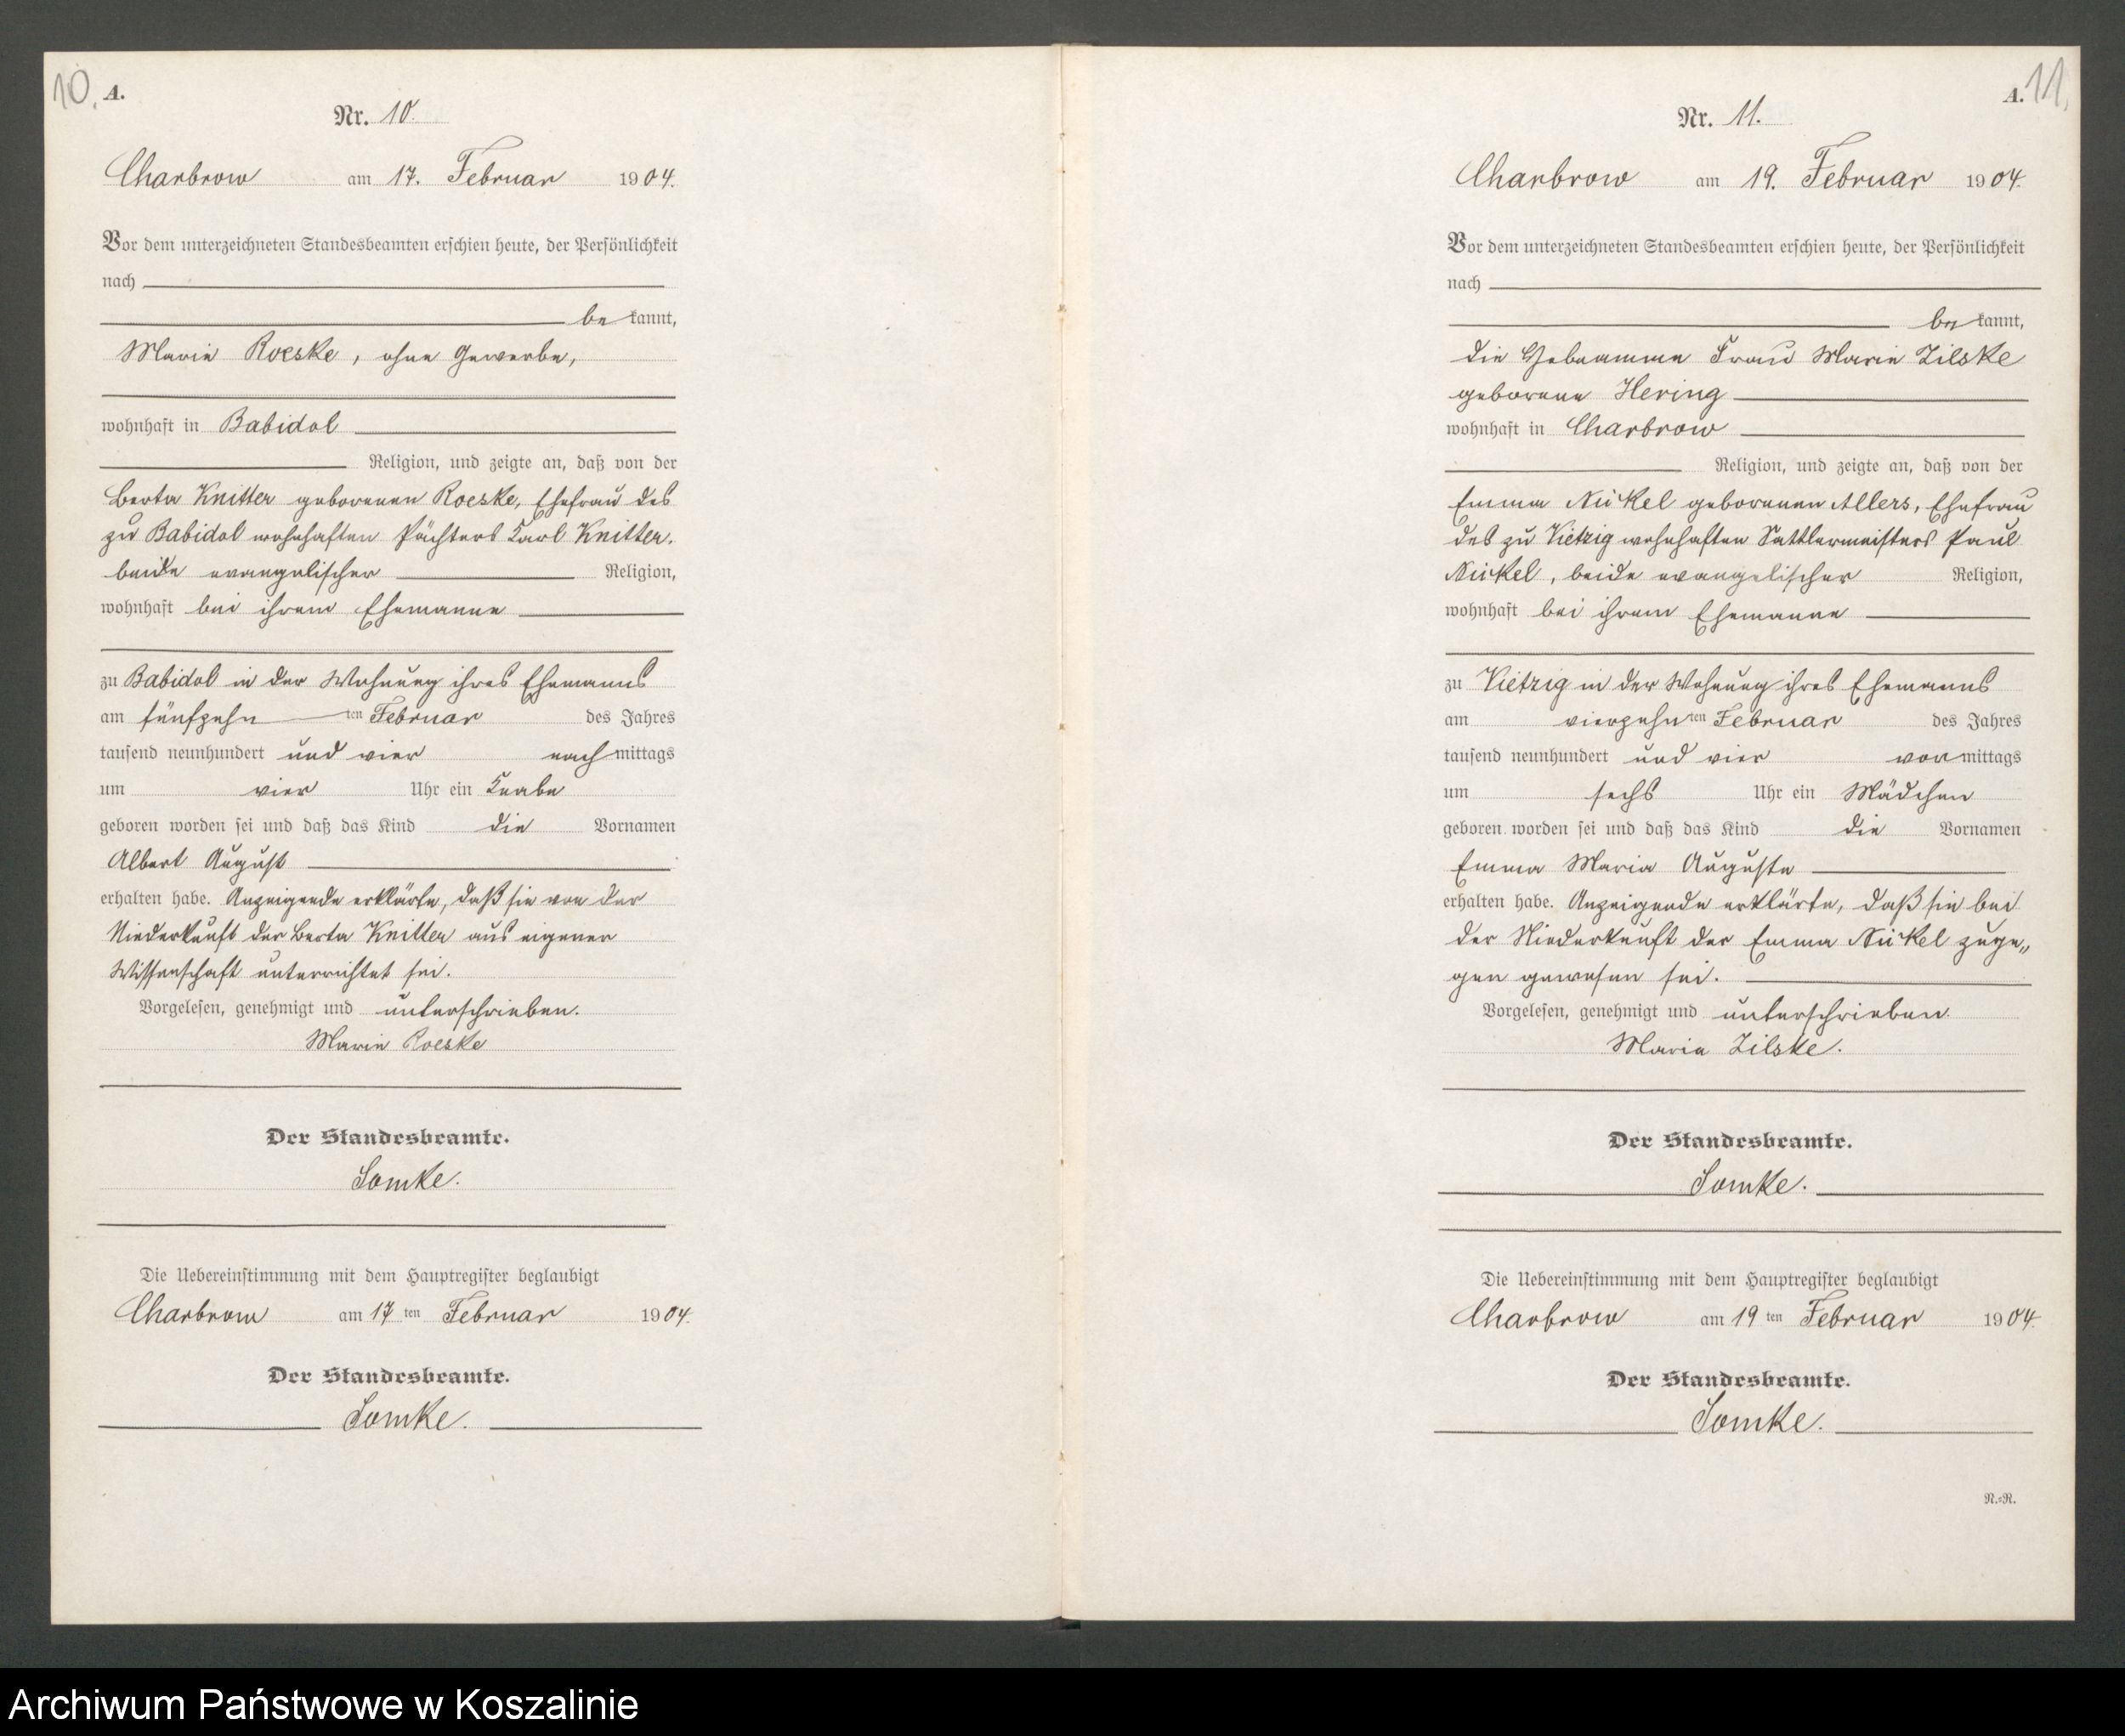 10.
A.
Nr. 10.
Charbrow am 17. Februar 1904.
Vor dem unterzeichneten Standesbeamten erschien heute, der Persönlichkeit
nach
be kannt,
Marie Roeske, ohne Gewerbe,
wohnhaft in Babidol
Religion, und zeigte an, daß von der
Berta Knitter geborenen Roeske, Ehefrau des
zu Babidol wohnhaften Pächters Karl Knitter,
beide evangelischer Religion,
wohnhaft bei ihrem Ehemanne
zu Babidol in der Wohnung ihres Ehemanns
am fünfzehn ten Februar des Jahres
tausend neunhundert und vier nachmittags
um vier Uhr ein Knabe
geboren worden sei und daß das Kind die Vornamen
Albert August
erhalten habe. Anzeigende erklärte, daß sie von der
Niederkunft der Berta Knitter aus eigener
Wissenschaft unterrichtet sei.
Vorgelesen, genehmigt und unterschrieben.
Marie Roeske
Der Standesbeamte.
Somke.
Die Uebereinstimmung mit dem Hauptregister beglaubigt
Charbrow am 17 ten Februar 1904.
Der Standesbeamte.
Somke.
A. 11.
Nr. 11.
Charbrow am 19. Februar 1904.
Vor dem unterzeichneten Standesbeamten erschien heute, der Persönlichkeit
nach
be kannt,
die Hebeamme Frau Marie Zilske
geborene Hering
wohnhaft in Charbrow
Religion, und zeigte an, daß von der
Emma Nückel geborenen Allers, Ehefrau
des zu Vietzig wohnhaften Sattlermeisters Paul
Nückel, beide evangelischer Religion,
wohnhaft bei ihrem Ehemanne
zu Vietzig in der Wohnung ihres Ehemanns
am vierzehn ten Februar des Jahres
tausend neunhundert und vier vormittags
um sechs Uhr ein Mädchen
geboren worden sei und daß das Kind die Vornamen
Emma Maria Auguste
erhalten habe. Anzeigende erklärte, daß sie bei
der Niederkunft der Emma Nückel zuge„
gen gewesen sei.
Vorgelesen, genehmigt und unterschrieben.
Marie Zilske.
Der Standesbeamte.
Somke.
Die Uebereinstimmung mit dem Hauptregister beglaubigt
Charbrow am 19 ten Februar 1904.
Der Standesbeamte.
Somke.
R.=R.
Archiwum Państwowe w Koszalinie